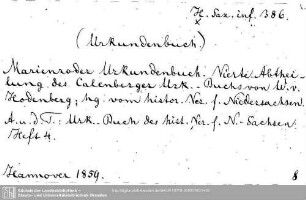 H. Sax. inf. 386.
(Urkundenbuch.)
Marienroder Urkundenbuch. Vierte Abthei-
lung des Calenberger Urk. Buchs von W. v.
Hodenberg; hg. vom histor. Ver. f. Niedersachsen.
A. u. d. T.: Urk. Buch des hist. Ver. f. N.-Sachsen.
Heft 4.
Hannover 1859. 8